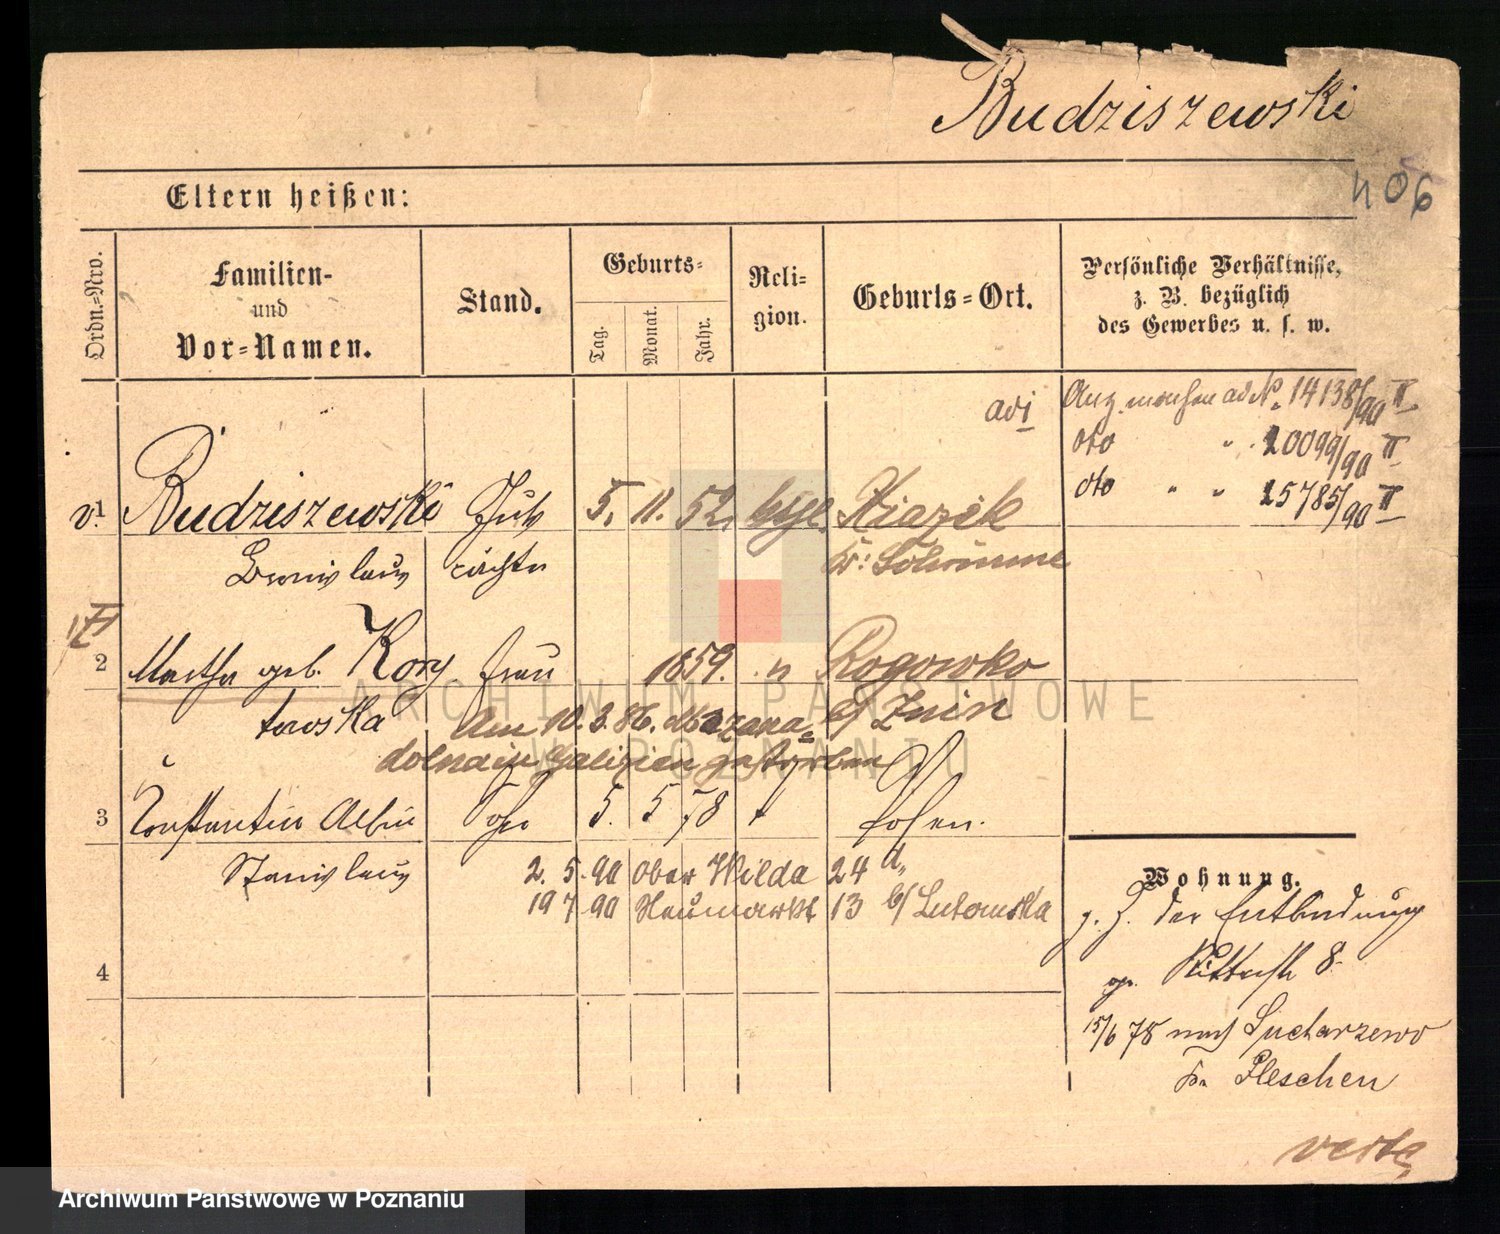 Budziszewski
406
Eltern heißen:
Ordn.=Nro.
Familien-
und
Vor=Namen.
Stand.
Geburts=
Tag.
Monat.
Jahr.
Reli=
gion.
Geburts=Ort.
Persönliche Verhältnisse,
z. B. bezüglich
des Gewerbes u. s. w.
adi
ad No. 14138/90 II
dto " 10099/90 II
dto " " 15785/90 II
1
Budziszewski
5. 11. 52.
Xiazek
Kr: Schrimm
Bronislaus
2
Martha geb. Kory
towska
Frau
1859.
"
Rogowko
b/ Znin
Am 10. 3. 86.
dolna in Galizien gestorben
3
Constantin Albin
Stanislaus
Sohn
5. 5 78
Posen.
2. 5. 90 Ober Wilda 24
19 7 90 Neumarkt 13 b/ Lutomska
4
Wohnung.
z. Z. der Entbindung
Ritterstr 8.
15/6 78 nach Sucharzewo
Kr. Pleschen
verte
ARCHIWUM PAŃSTWOWE
W POZNANIU
Archiwum Państwowe w Poznaniu